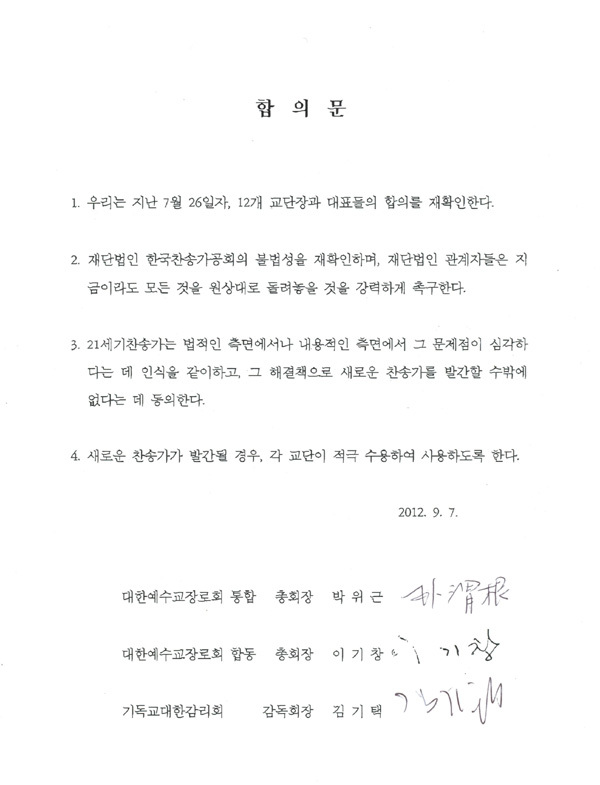 합 의 문
1. 우리는 지난 7월 26일자, 12개 교단장과 대표들의 합의를 재확인한다.
2. 재단법인 한국찬송가공회의 불법성을 재확인하며, 재단법인 관계자들은 지
금이라도 모든 것을 원상대로 돌려놓을 것을 강력하게 촉구한다.
3. 21세기찬송가는 법적인 측면에서나 내용적인 측면에서 그 문제점이 심각하
다는 데 인식을 같이하고, 그 해결책으로 새로운 찬송가를 발간할 수밖에
없다는 데 동의한다.
4. 새로운 찬송가가 발간될 경우, 각 교단이 적극 수용하여 사용하도록 한다.
2012. 9. 7.
대한예수교장로회 통합 총회장 박 위 근 朴渭根
대한예수교장로회 합동 총회장 이 기 창 이기창
기독교대한감리회 감독회장 김 기 택